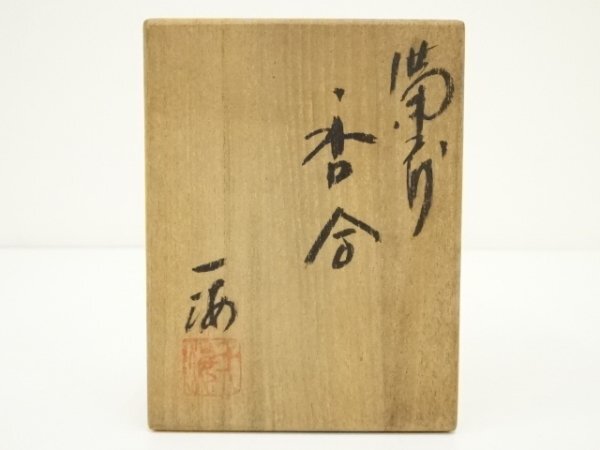 備前
香合
一海